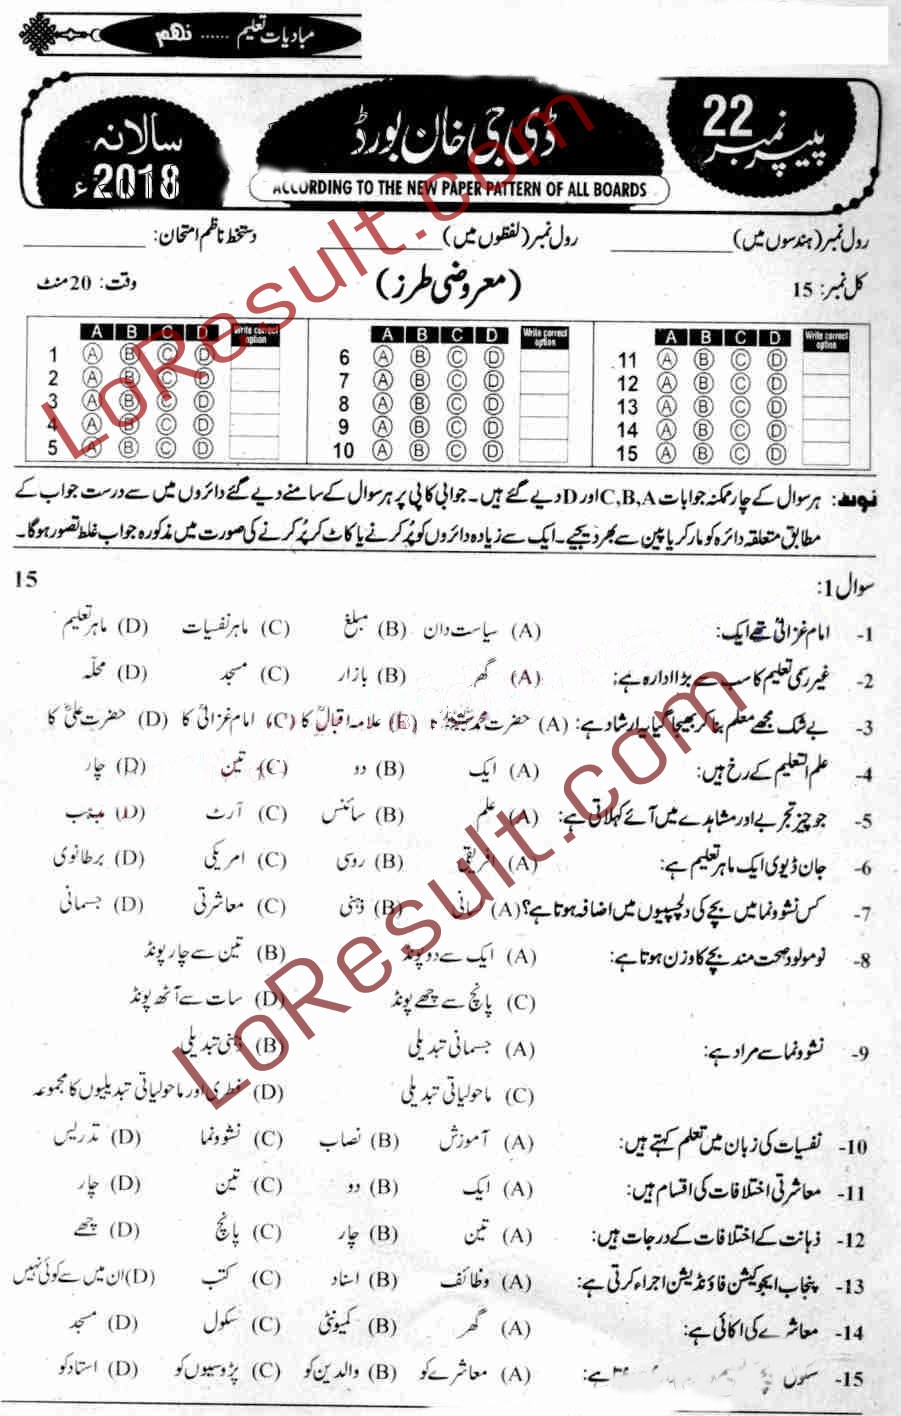 مبادیات تعلیم ...... نہم
پیپر نمبر 22
ڈی جی خان بورڈ
سالانہ 2018ء
ACCORDING TO THE NEW PAPER PATTERN OF ALL BOARDS
رول نمبر (ہندسوں میں) ____________ رول نمبر (لفظوں میں) ____________ دستخط ناظم امتحان: ____________
کل نمبر: 15 (معروضی طرز) وقت: 20 منٹ
A B C D Write correct option A B C D Write correct option A B C D Write correct option
1 A B C D 6 A B C D 11 A B C D
2 A B C D 7 A B C D 12 A B C D
3 A B C D 8 A B C D 13 A B C D
4 A B C D 9 A B C D 14 A B C D
5 A B C D 10 A B C D 15 A B C D
نوٹ: ہر سوال کے چار ممکنہ جوابات C,B,A اور D دیے گئے ہیں۔ جوابی کاپی پر ہر سوال کے سامنے دیے گئے دائروں میں سے درست جواب کے
مطابق متعلقہ دائرہ کو مارکر یا پین سے بھر دیجیے۔ ایک سے زیادہ دائروں کو پُر کرنے یا کاٹ کر پُر کرنے کی صورت میں مذکورہ جواب غلط تصور ہوگا۔
سوال 1: 15
1- امام غزالیؒ تھے ایک: (A) سیاست دان (B) مبلغ (C) ماہر نفسیات (D) ماہر تعلیم
2- غیر رسمی تعلیم کا سب سے بڑا ادارہ ہے: (A) گھر (B) بازار (C) مسجد (D) محلّہ
3- بے شک مجھے معلم بنا کر بھیجا گیا یہ ارشاد ہے: (A) حضرت محمدﷺ کا (B) علامہ اقبالؒ کا (C) امام غزالیؒ کا (D) حضرت علیؓ کا
4- علم التعلیم کے رخ ہیں: (A) ایک (B) دو (C) تین (D) چار
5- جو چیز تجربے اور مشاہدے میں آئے کہلاتی ہے: (A) علم (B) سائنس (C) آرٹ (D) مذہب
6- جان ڈیوی ایک ماہر تعلیم ہے: (A) افریقی (B) روسی (C) امریکی (D) برطانوی
7- کس نشوونما میں بچے کی دلچسپیوں میں اضافہ ہوتا ہے؟ (A) لسانی (B) ذہنی (C) معاشرتی (D) جسمانی
8- نومولود صحت مند بچے کا وزن ہوتا ہے: (A) ایک سے دو پونڈ (B) تین سے چار پونڈ
(C) پانچ سے چھے پونڈ (D) سات سے آٹھ پونڈ
9- نشوونما سے مراد ہے: (A) جسمانی تبدیلی (B) ذہنی تبدیلی
(C) ماحولیاتی تبدیلی (D) فطری اور ماحولیاتی تبدیلیوں کا مجموعہ
10- نفسیات کی زبان میں تعلم کہتے ہیں: (A) آموزش (B) نصاب (C) نشوونما (D) تدریس
11- معاشرتی اختلافات کی اقسام ہیں: (A) ایک (B) دو (C) تین (D) چار
12- ذہانت کے اختلافات کے درجات ہیں: (A) تین (B) چار (C) پانچ (D) چھے
13- پنجاب ایجوکیشن فاؤنڈیشن اجراء کرتی ہے: (A) وظائف (B) اسناد (C) کتب (D) ان میں سے کوئی نہیں
14- معاشرے کی اکائی ہے: (A) گھر (B) کمیونٹی (C) سکول (D) مسجد
15- سکول ہے: (A) معاشرے کو (B) والدین کو (C) پڑوسیوں کو (D) استاد کو
LoResult.com
LoResult.com